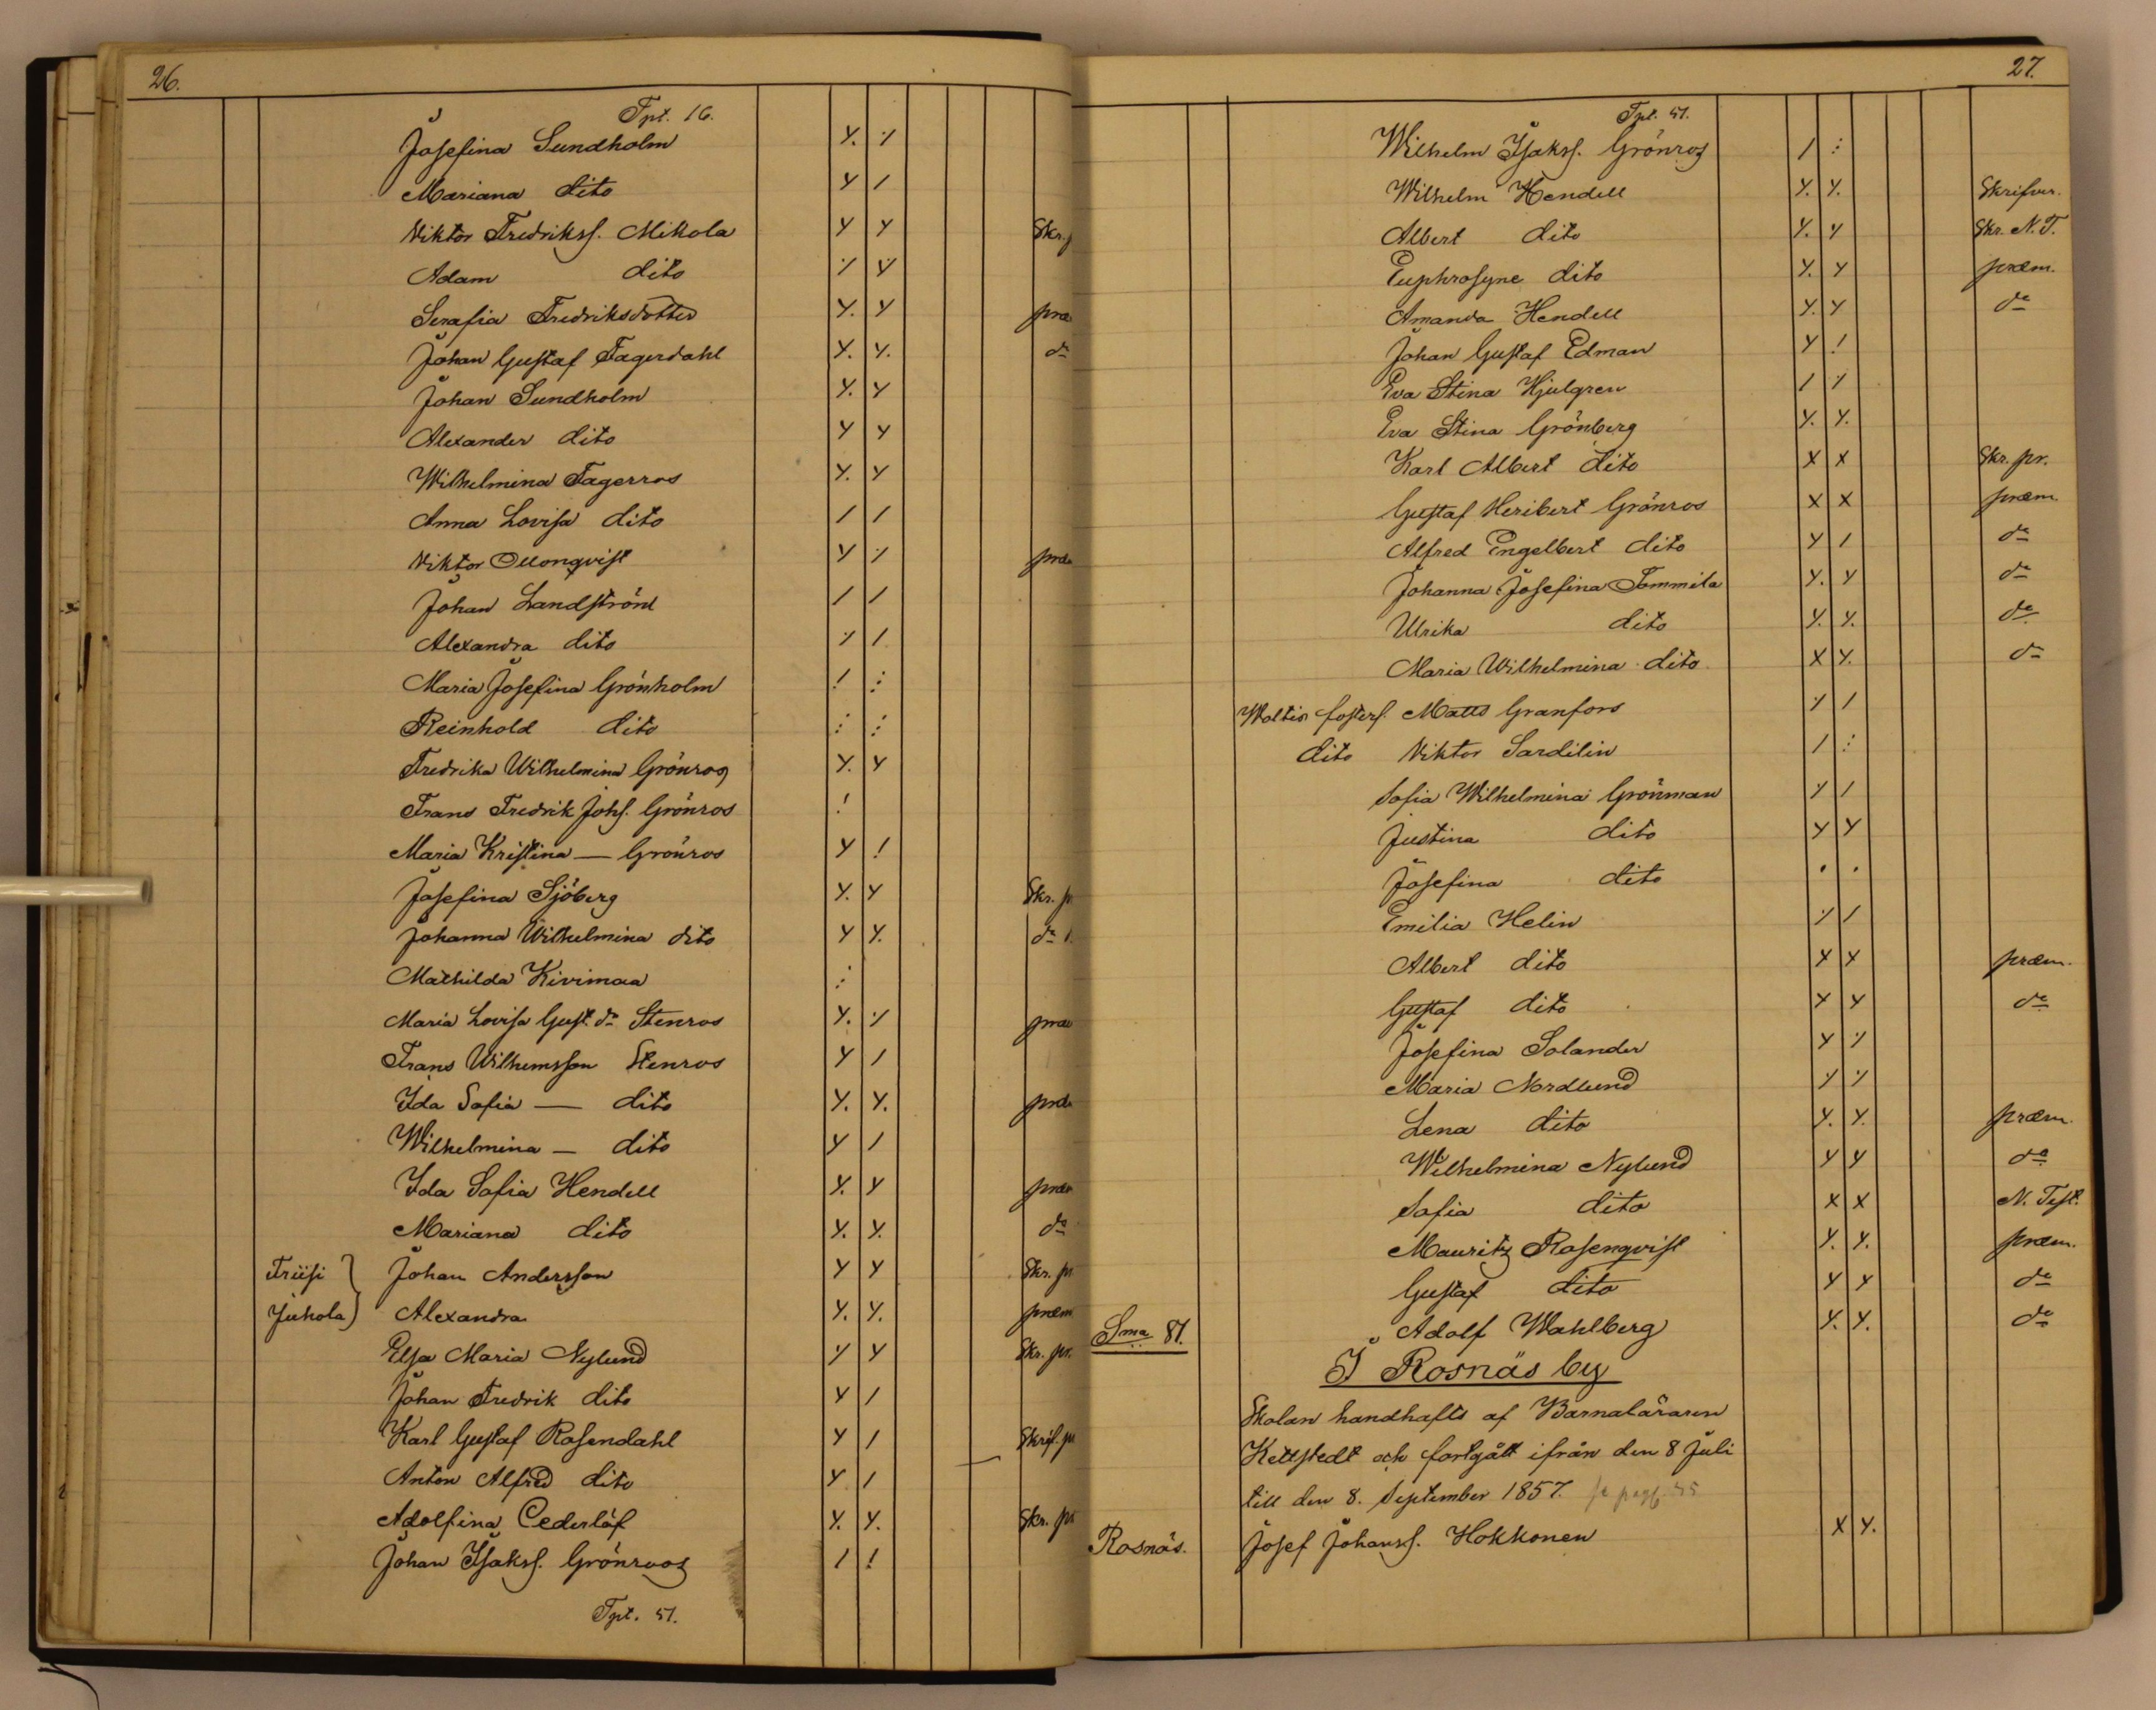 26.
Tpt. 16.
Josefina Sundholm Y. ⁒
Mariana dito Y /
Viktor Fredrikss. Mikola Y Y Skr. p
Adam dito ⁒ Y
Serafia Fredriksdotter Y. Y præ
Johan Gustaf Fagerdahl Y. Y. do
Johan Sundholm Y. Y
Alexander dito Y Y
Wilhelmina Fagerros Y. Y
Anna Lovisa dito / /
Viktor Ollonqvist Y ⁒ præ
Johan Landström / /
Alexandra dito ⁒ /
Maria Josefina Grönholm ! :
Reinhold dito : :
Fredrika Wilhelmina Grönros Y. Y
Frans Fredrik Johs. Grönros !
Maria Kristina — Grönros Y !
Josefina Sjöberg Y. Y Skr. p
Johanna Wilhelmina dito Y Y. do
Mathilda Kivimaa :
Maria Lovisa Gust. do Stenros Y. ⁒ præ
Frans Wilhemsson Stenros Y /
Ida Sofia — dito Y. Y. præ
Wilhelmina — dito Y /
Ida Sofia Hendell Y. Y præ
Mariana dito Y. Y. do
Friisi } Johan Andersson Y Y Skr. pr
Juhola } Alexandra Y. Y. præm
Elsa Maria Nylund ⁒ Y Skr. pr.
Johan Fredrik dito Y /
Karl Gustaf Rosendahl Y / Skrif. pr
Anton Alfred dito Y /
Adolfina Cederlöf Y. Y. Skr. pr
Johan Isakss. Grönroos / !
Tpt. 51.
27.
Tpt. 51.
Wilhelm Isakss. Grönros / :
Wilhelm Hendell Y. Y. Skrifver.
Albert dito Y. Y Skr. N. T.
Euphrosyne dito Y. Y præm.
Amanda Hendell Y. Y do
Johan Gustaf Edman Y !
Eva Stina Hjulgren / ⁒
Eva Stina Grönberg Y. Y.
Karl Albert dito X X Skr. pr.
Gustaf Heribert Grönros X X præm.
Alfred Engelbert dito Y / do
Johanna Josefina Tommila Y. Y do
Ulrika dito Y. Y. do
Maria Wilhelmina dito X Y. do
Woltis fosters. Matts Granfors ⁒ /
dito Viktor Sardelin / :
Sofia Wilhelmina Grönman ⁒ /
Justina dito Y Y
Josefina dito . .
Emilia Helin ⁒ /
Albert dito X X præm.
Gustaf dito X Y do
Josefina Solander Y ⁒
Maria Nordlund ⁒ ⁒
Lena dito Y. Y. præm.
Wilhelmina Nylund Y Y do
Sofia dito X X N. Test.
Mauritz Rosenqvist Y. Y. præm.
Gustaf dito Y Y do
Sma 81. Adolf Wahlberg Y. Y. do
I Rosnäs by
Skolan handhafts af Barnaläraren
Kellstedt och fortgått ifrån den 8 Juli
till den 8. September 1857. se pag. 45
Rosnäs. Josef Johanss. Hokkonen X Y.